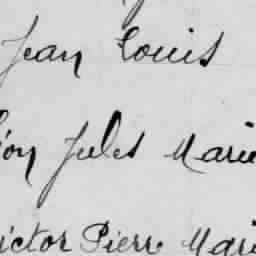 Jean Louis
éon Jules Marie
ictor Pierre Mari